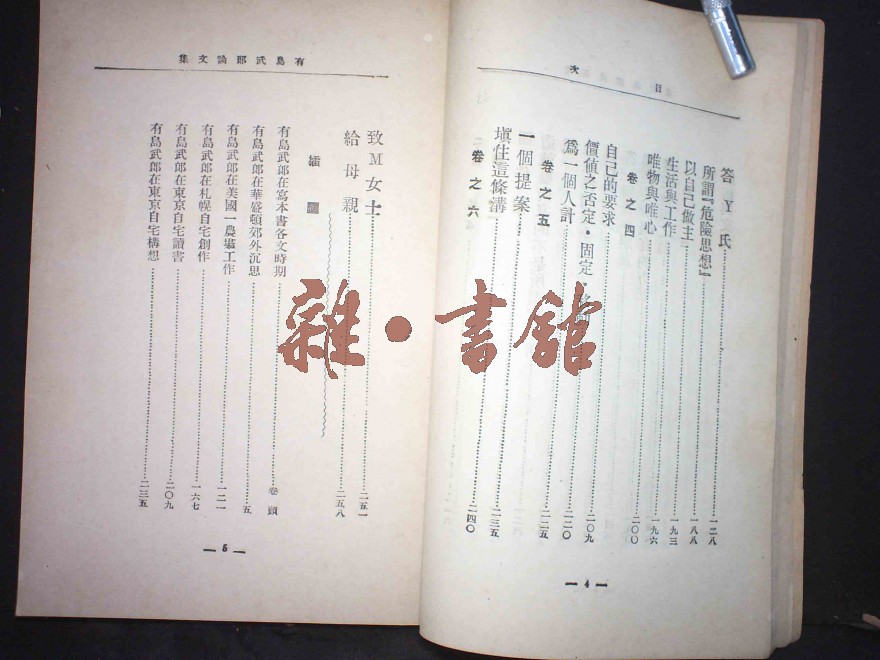 目次
答Y氏……一二八
所謂『危險思想』……一八八
以自己做主……一九三
生活與工作……一九六
唯物與唯心……二〇〇
卷之四
自己的要求……二〇九
價值之否定・固定……二二〇
爲一個人計……二二五
卷之五
一個提案……二三五
塡住這條溝……二四〇
卷之六
—4—
有島武郎論文集
致M女士……二五一
給母親……二五八
插圖
有島武郎在寫本書各文時期……卷頭
有島武郎在華盛頓郊外沉思……五
有島武郎在美國一農塲工作……一二一
有島武郎在札幌自宅創作……一六七
有島武郎在東京自宅讀書……二〇九
有島武郎在東京自宅構想……二三五
—5—
雜・書館